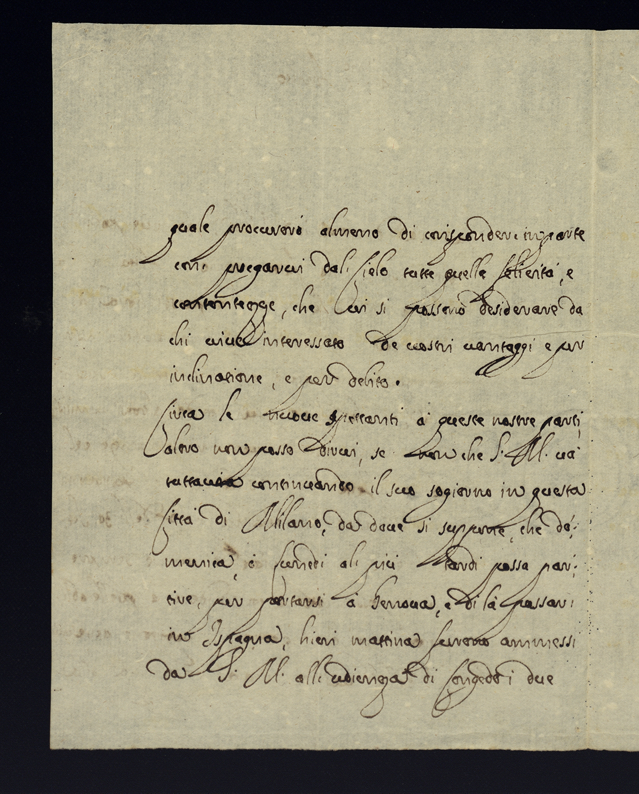 quale procurerò almeno di corrisponder in parte
con pregarvi dal Cielo tutte quelle felicità, e
contentezze, che Lui si possono desiderare da
chi vive interessato de vostri vantaggi e per
inclinatione, e per debito.
Circa le nuove spettanti à queste nostre parti,
altro non posso dirvi, se non che S. M. và
tuttavia continuando il suo sogiorno in questa
Città di Milano, da dove si suppone, che do,,
menica, ò lunedi al più tardi possa par,,
tire, per portarsi à Genova, e di là passar
in Ispagna, hieri mattina furono ammessi
da S. M. all udienza di Congedo i due